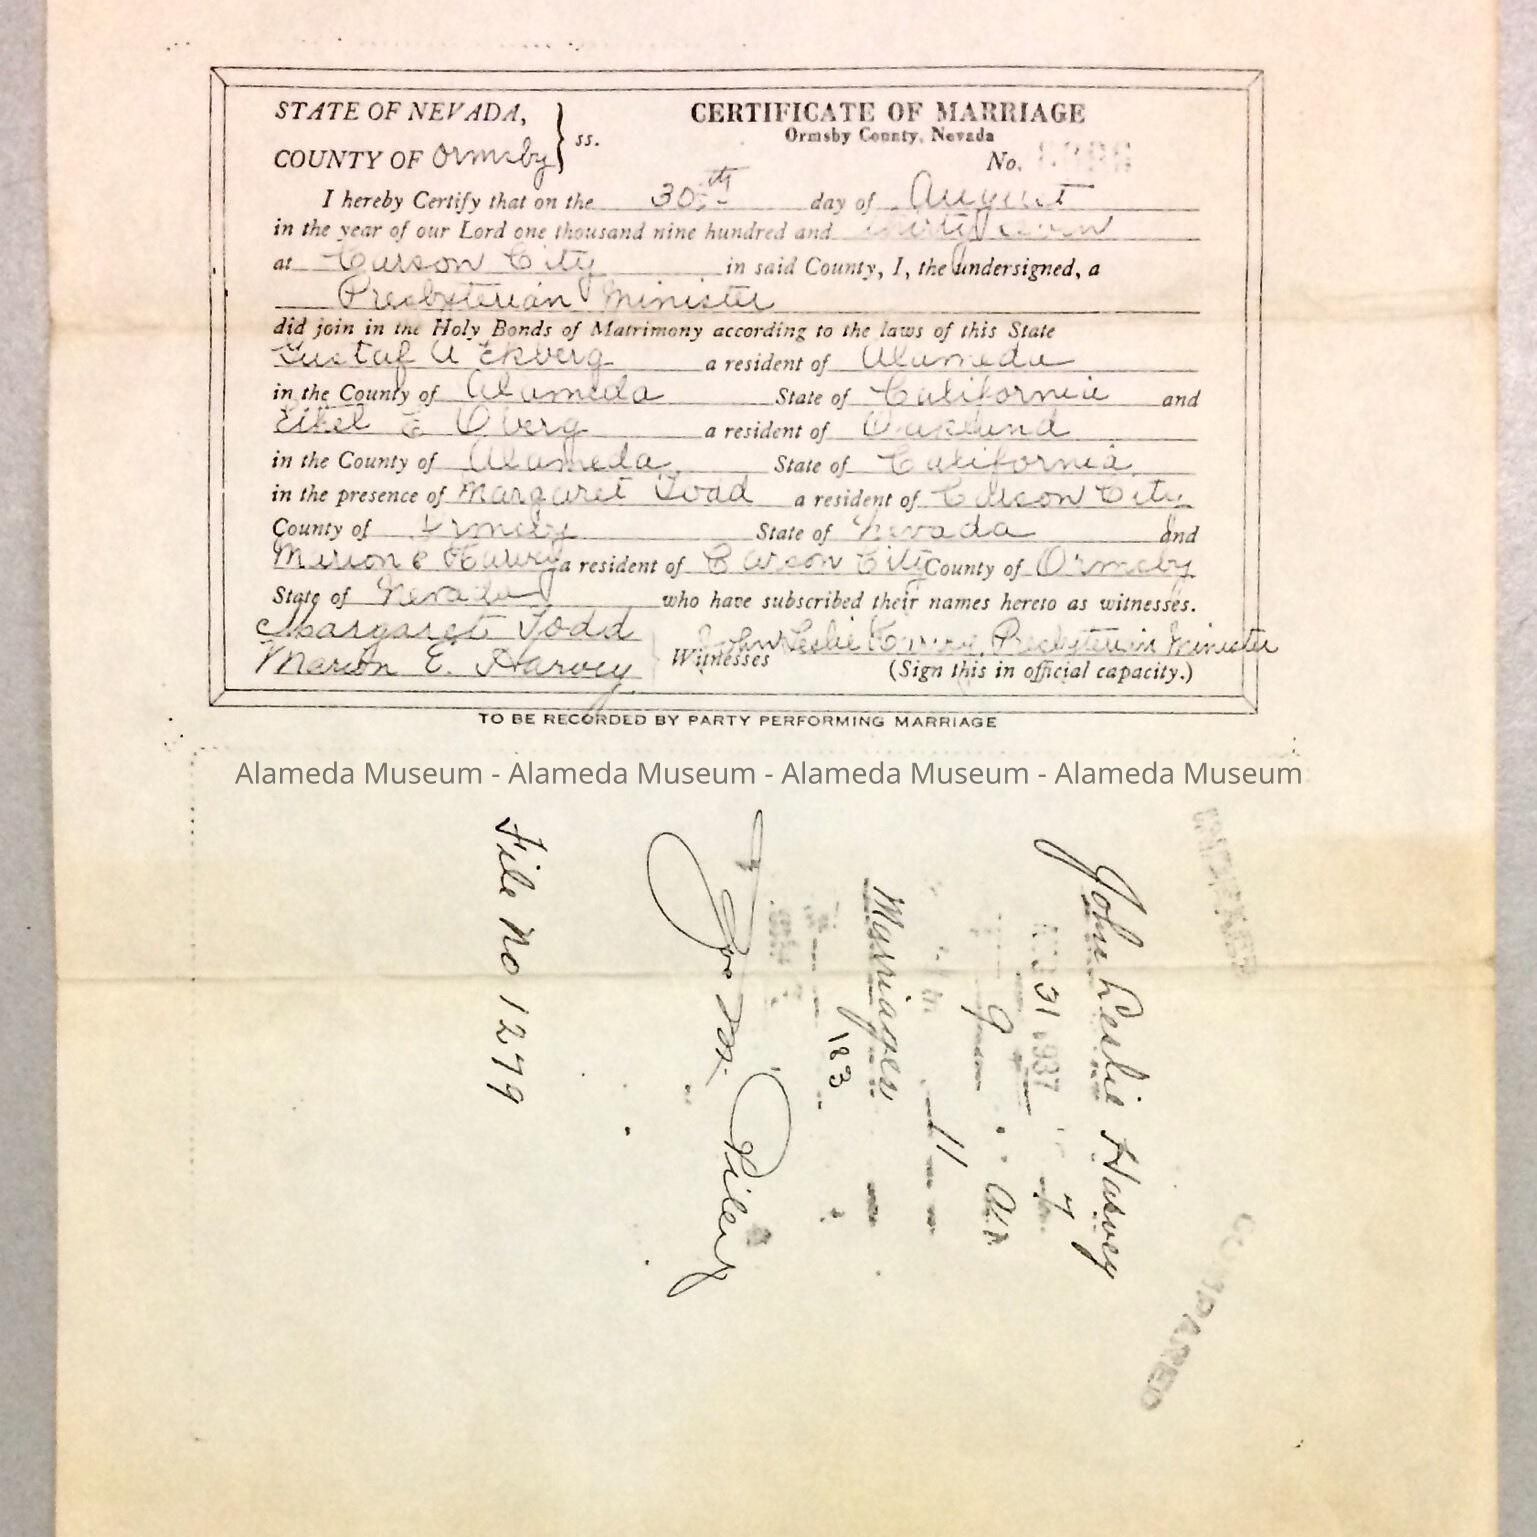 STATE OF NEVADA,
COUNTY OF Ormsby } ss.
CERTIFICATE OF MARRIAGE
Ormsby County, Nevada
No.
I hereby Certify that on the 30th day of August
in the year of our Lord one thousand nine hundred and thirty seven
at Carson City in said County, I, the undersigned, a
Presbyterian Minister
did join in the Holy Bonds of Matrimony according to the laws of this State
Gustaf A Ekberg a resident of Alameda
in the County of Alameda State of California and
Ethel E Oberg a resident of Oakland
in the County of Alameda State of California
in the presence of Margaret Todd a resident of Carson City
County of Ormsby State of Nevada and
Marion E Harvey a resident of Carson City County of Ormsby
State of Nevada who have subscribed their names hereto as witnesses.
Margaret Todd
Marion E. Harvey
Witnesses
John Leslie Harvey, Presbyterian Minister
(Sign this in official capacity.)
TO BE RECORDED BY PARTY PERFORMING MARRIAGE
Alameda Museum - Alameda Museum - Alameda Museum - Alameda Museum
INDEXED
COMPARED
John Leslie Harvey
31 1937
9 A.M
11
Marriages
183
File No 1279